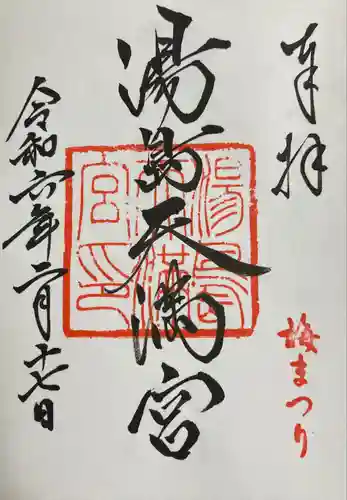 奉拝
梅まつり
湯島天満宮
湯島天満宮印
令和六年二月十七日